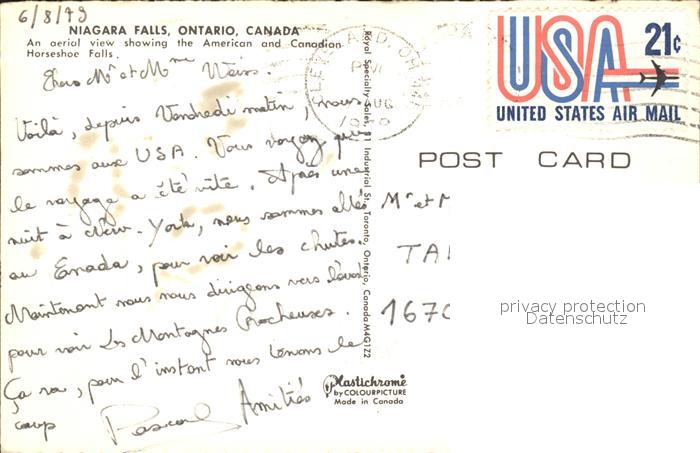 6/8/79
NIAGARA FALLS, ONTARIO, CANADA
An aerial view showing the American and Canadian
Horseshoe Falls.
Chers Mr et Mme Weiss.
Voilà, depuis Vendredi matin, nous
sommes aux USA. Vous voyez que
le voyage a été vite. Après une
nuit à New-York, nous sommes allés
au Canada, pour voir les chutes.
Maintenant nous nous dirigeons vers l'ouest
pour voir les Montagnes Rocheuses.
Ça va, pour l'instant nous tenons le
coup
Amitiés
Pascal
Royal Specialty Sales, 91 Industrial St., Toronto, Ontario, Canada M4G1Z2
Plastichrome
by COLOURPICTURE
Made in Canada
CLEVELAND, OH
AUG
USA 21c
UNITED STATES AIR MAIL
POST CARD
Mr et M
TA
1670
privacy protection
Datenschutz